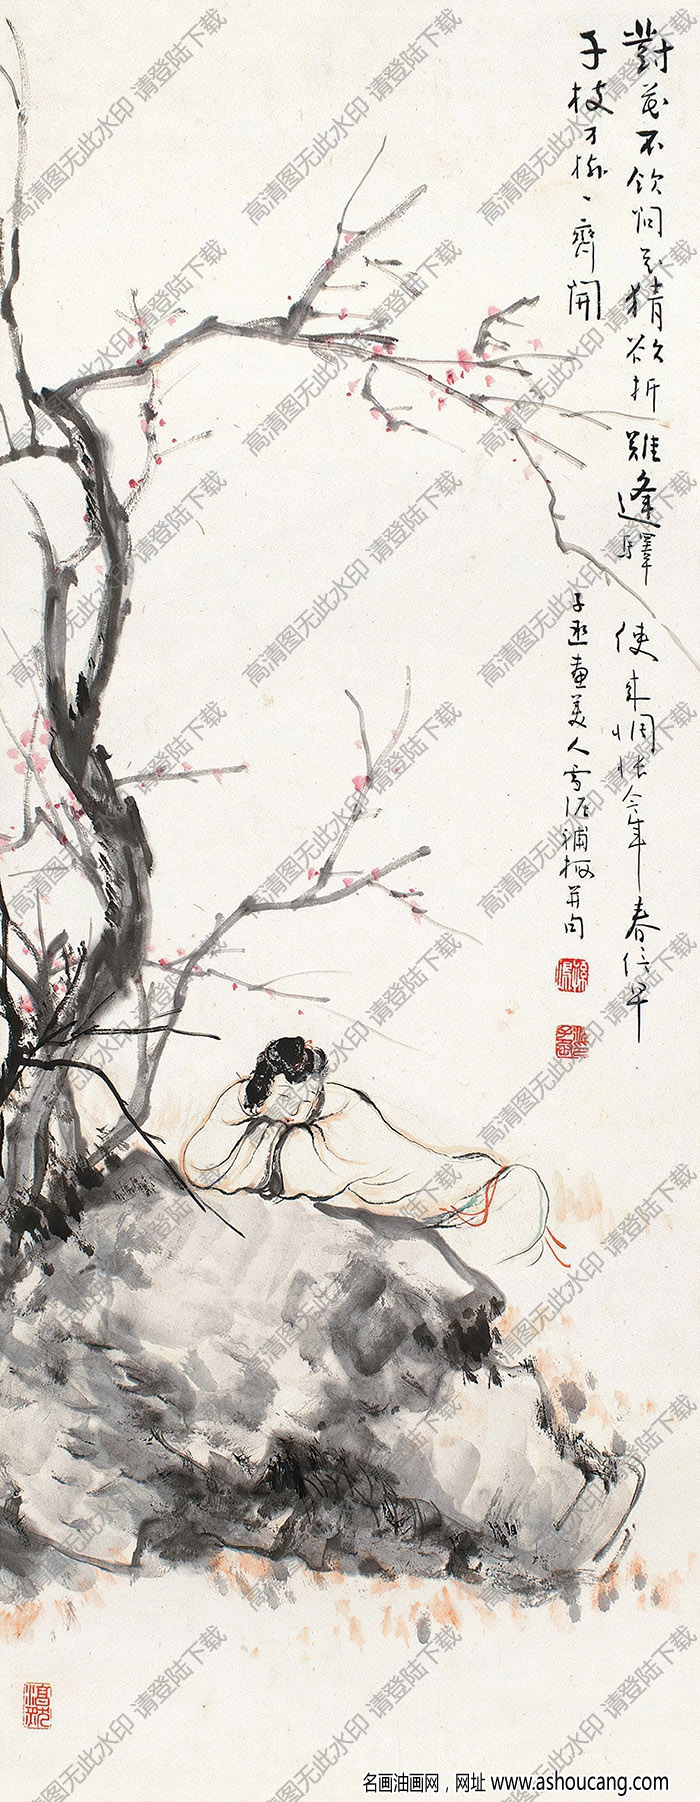 對花不飲悶猜欲折難逢驛使来惆悵今年春信早
枝万樹齊開
子丞畫美人雪泥補梅并句
高清图无此水印 请登陆下载
名画油画网，网址 www.ashoucang.com